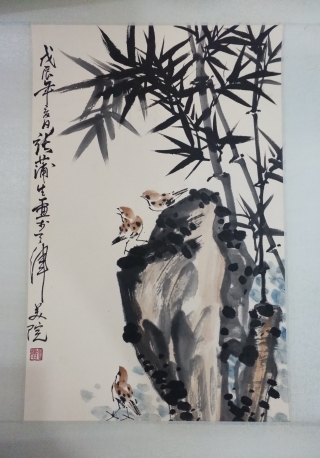 戊辰年六月張蒲生画于天津美院